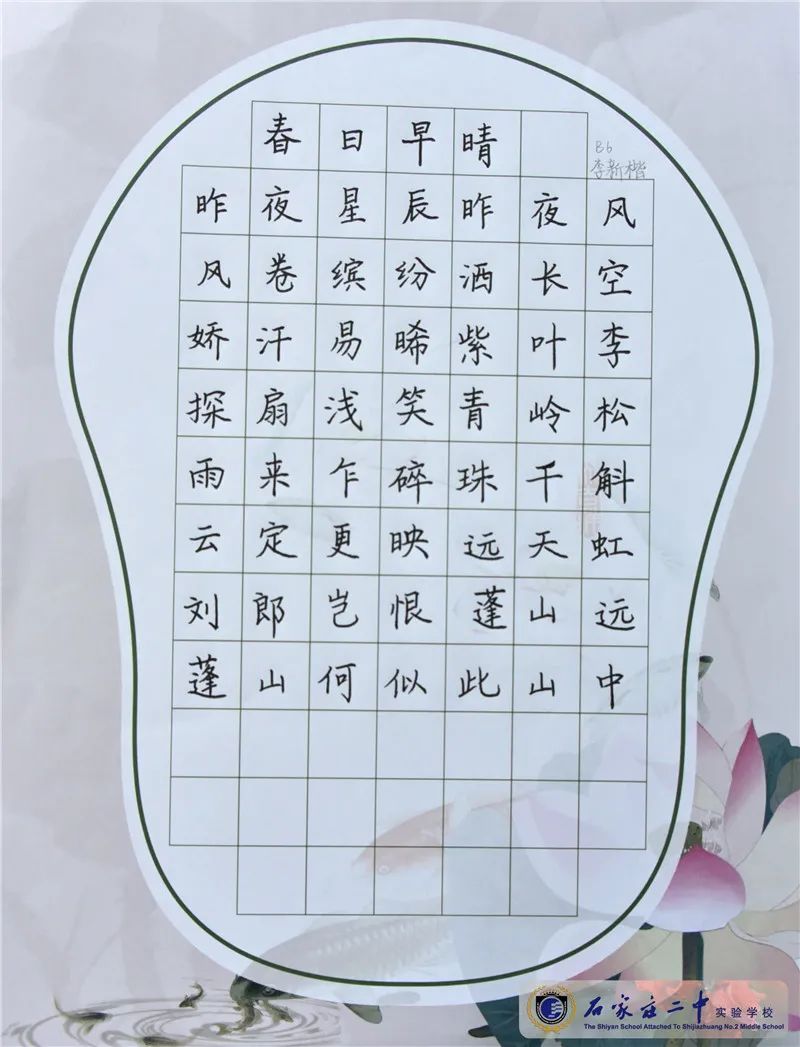 春日早晴
B6
李新楷
昨夜星辰昨夜风
风卷缤纷洒长空
娇汗易晞紫叶李
探扇浅笑青岭松
雨来乍碎珠千斛
云定更映远天虹
刘郎岂恨蓬山远
蓬山何似此山中
石家庄二中实验学校
The Shiyan School Attached To Shijiazhuang No.2 Middle School